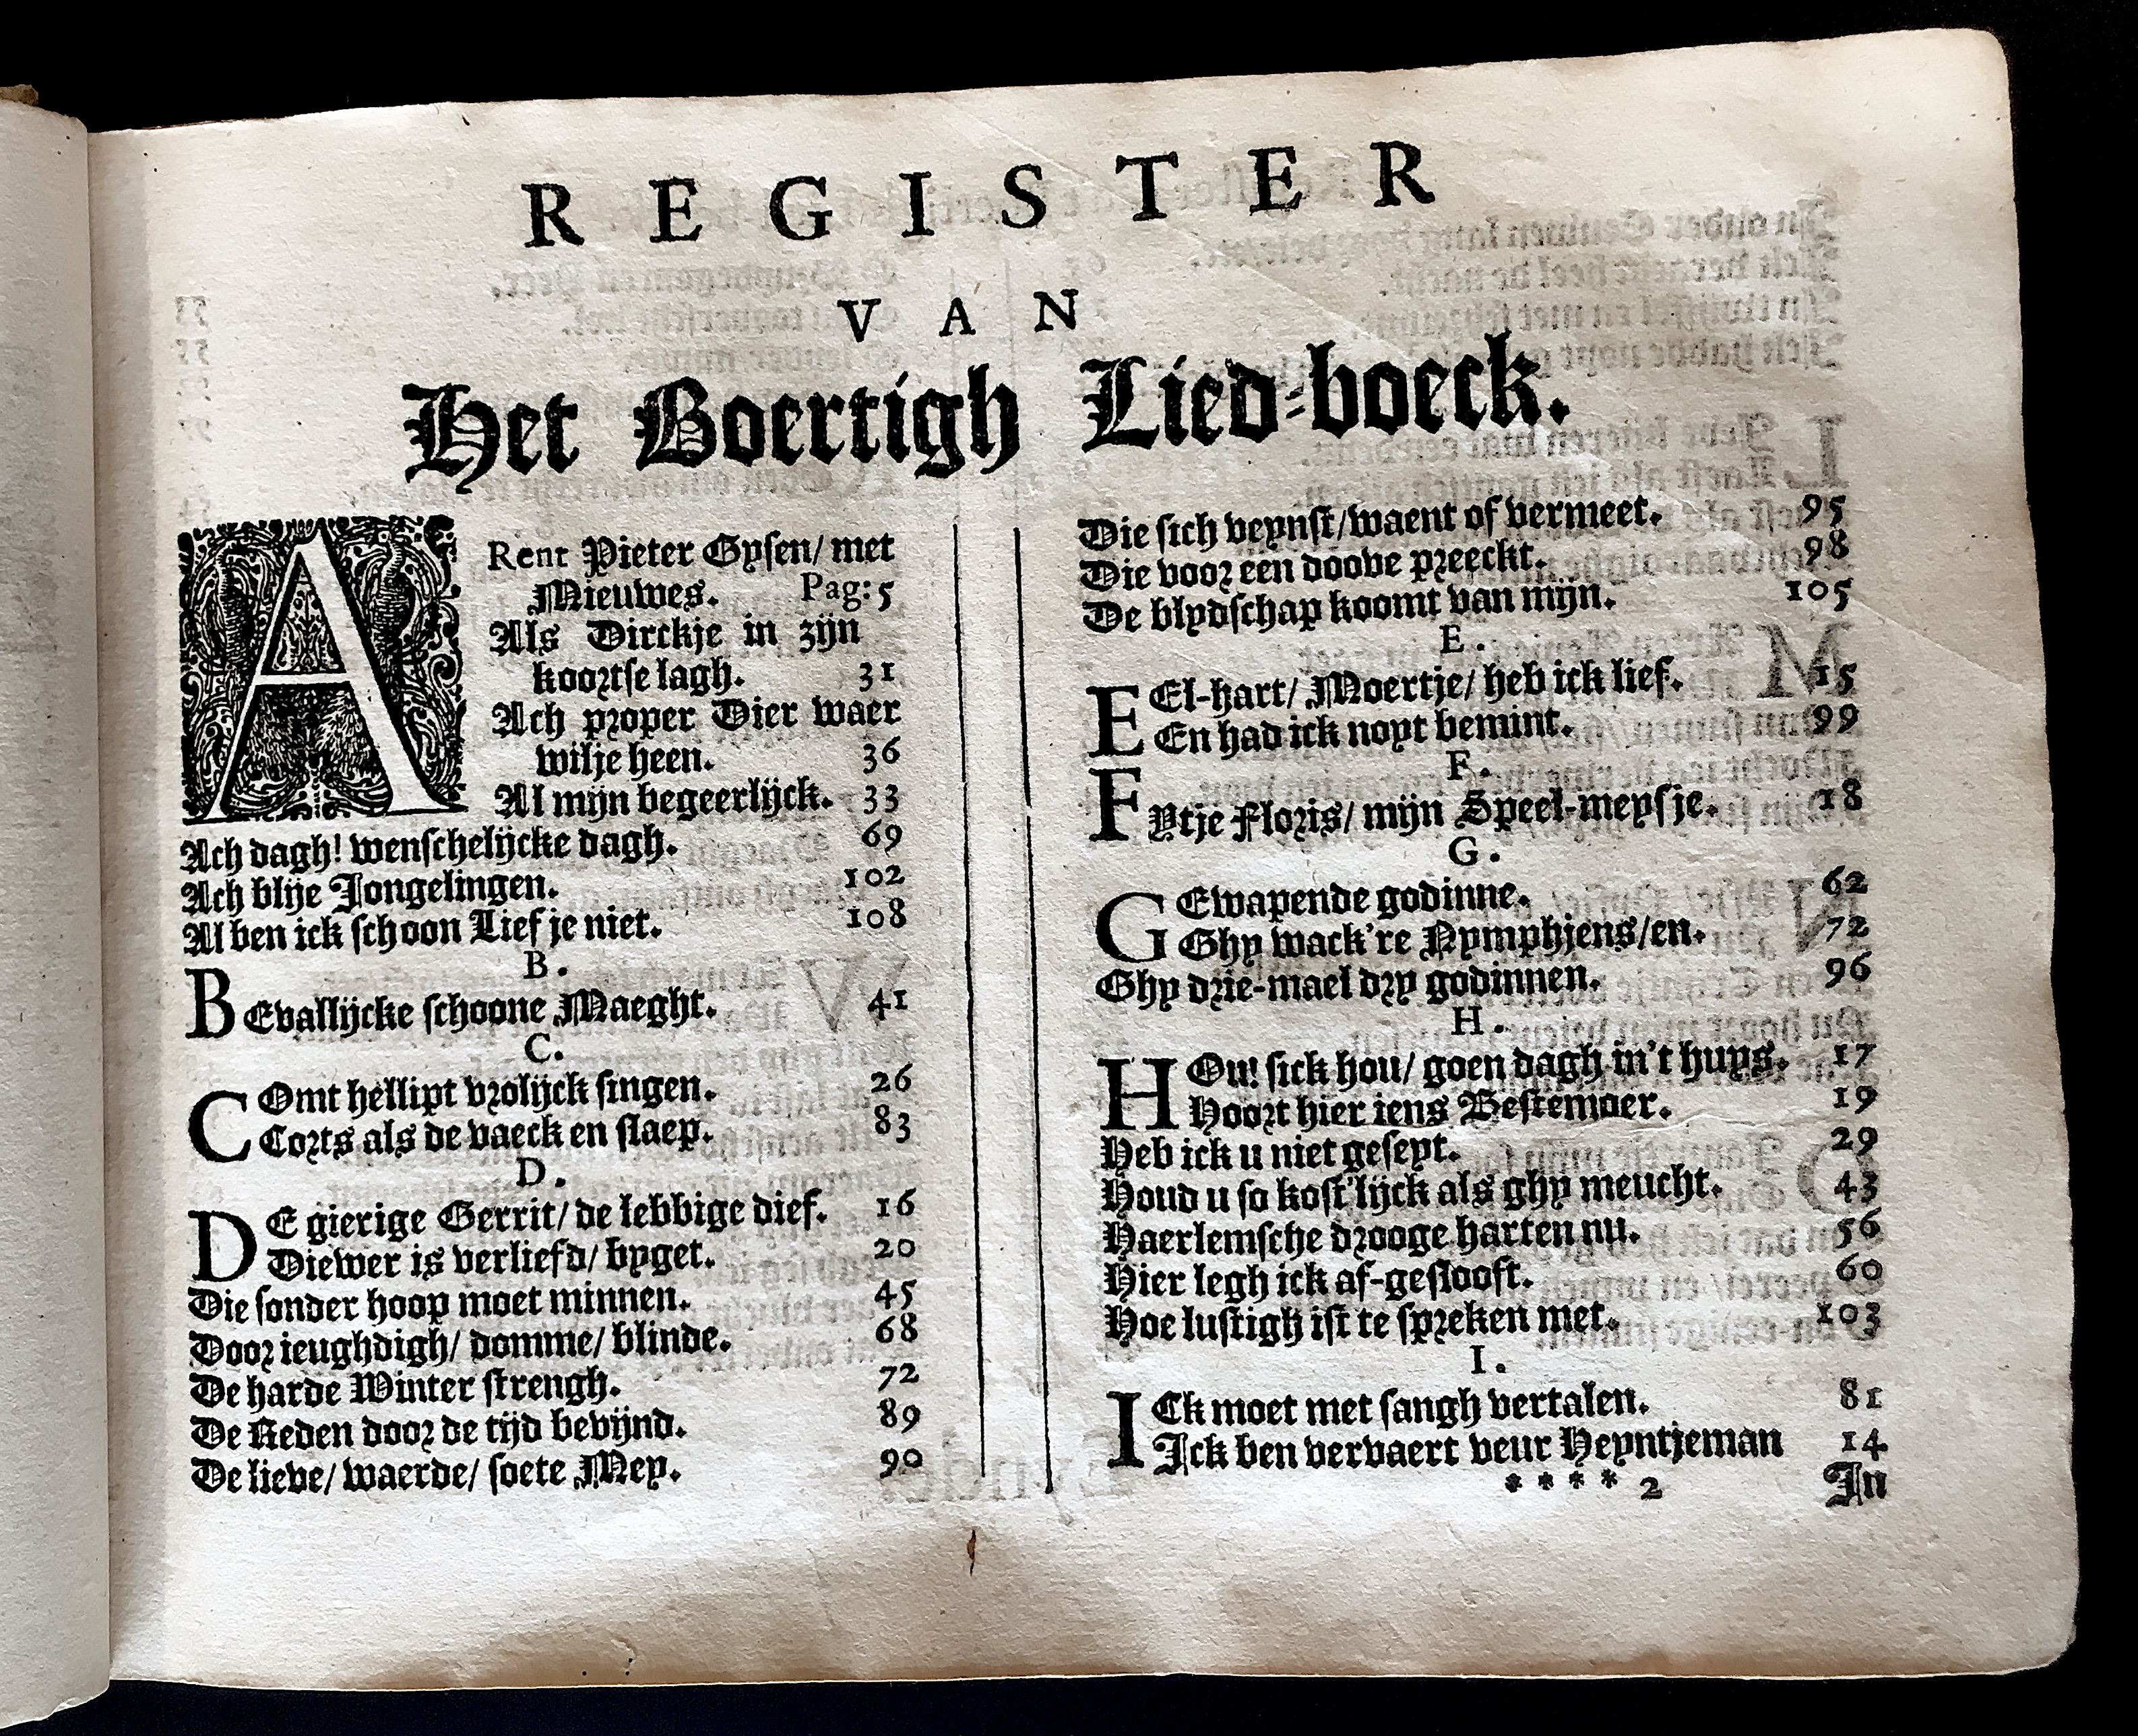 REGISTER
VAN
Het Boertigh Lied-boeck.
ARent Pieter Gysen/ met
Mieuwes. Pag: 5
Als Dirckje in zijn
koortse lagh. 31
Ach proper Dier waer
wilje heen. 36
Al mijn begeerlijck. 33
Ach dagh! wenschelijcke dagh. 69
Ach blije Jongelingen. 102
Al ben ick schoon Lief je niet. 108
B.
BEvallijcke schoone Maeght. 41
C.
COmt hellipt vrolijck singen. 26
Corts als de vaeck en slaep. 83
D.
DE gierige Gerrit/ de lebbige dief. 16
Diewer is verliefd/ byget. 20
Die sonder hoop moet minnen. 45
Door ieughdigh/ domme/ blinde. 68
De harde Winter strengh. 72
De Reden door de tijd bevijnd. 89
De lieve/ waerde/ soete Mey. 90
Die sich veynst/waent of vermeet. 95
Die voor een doove preeckt. 98
De blydschap koomt van mijn. 105
E.
EEl-hart/ Moertje/ heb ick lief. 15
En had ick noyt bemint. 99
F.
FYtje Floris/ mijn Speel-meysje. 18
G.
GEwapende godinne. 62
Ghy wack're Nymphjens/en. 72
Ghy drie-mael dry godinnen. 96
H.
HOu! sick hou/ goen dagh in't huys. 17
Hoort hier iens Bestemoer. 19
Heb ick u niet geseyt. 29
Houd u so kost'lijck als ghy meucht. 43
Haerlemsche drooge harten nu. 56
Hier legh ick af-geslooft. 60
Hoe lustigh ist te spreken met. 103
I.
ICk moet met sangh vertalen. 81
Ick ben vervaert veur Heyntjeman 14
**** 2 In